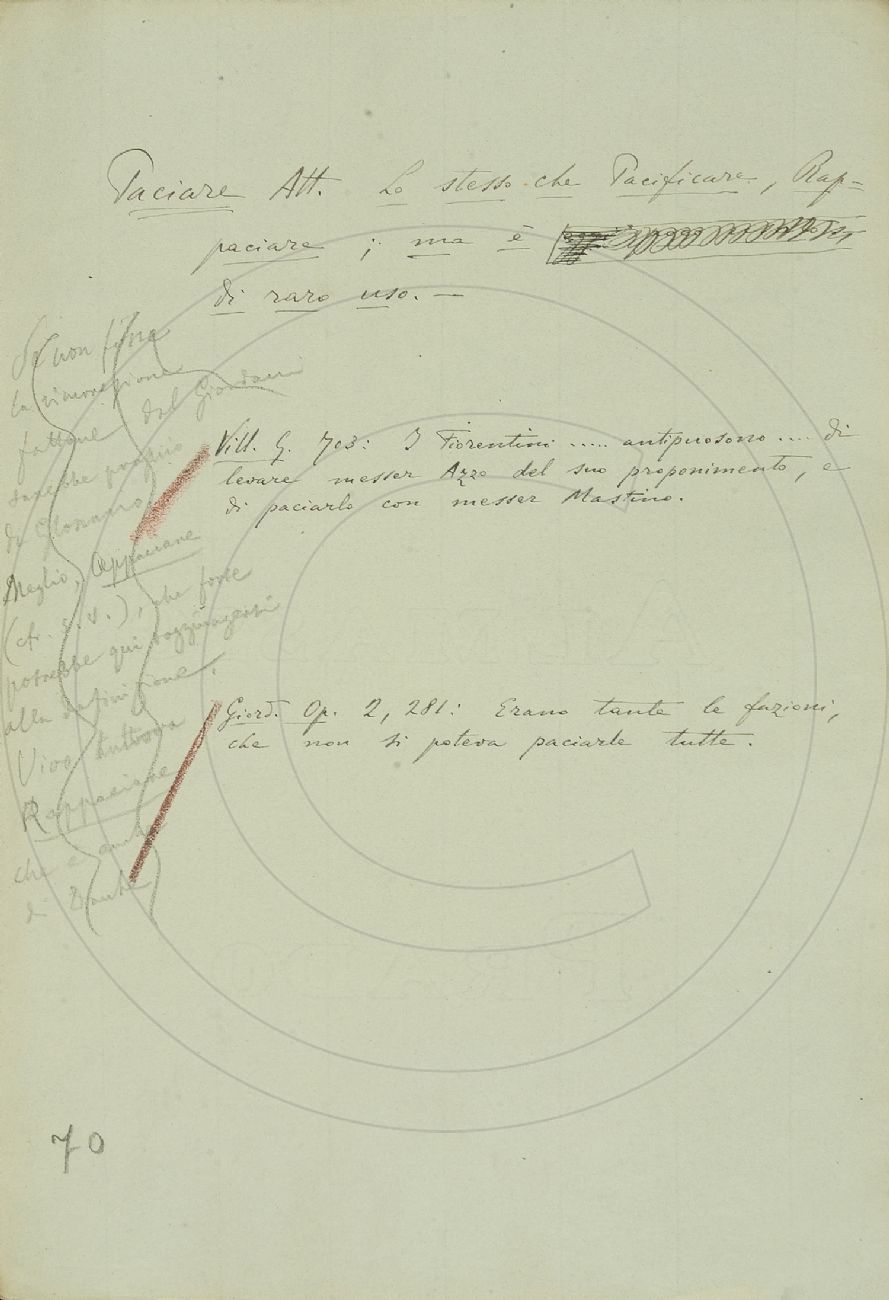 Paciare Att. Lo stesso che Pacificare, Rap=
paciare ; ma è
di raro uso. —
Vill. G. 703: I Fiorentini ..... antipuosono .... di
levare messer Azzo del suo proponimento, e
di paciarlo con messer Mastino.
Giord. Op. 2, 281: Erano tante le fazioni,
che non si poteva paciarle tutte.
Se non fosse
la rinnovazione
fattone dal Giordani
sarebbe proprio
da Glossario
Meglio, Appaciare
(cfr. q. v.), che forse
potrebbe qui raggiungersi
alla definizione.
Vive tuttora
Rappaciare
che è anche
di Dante
70